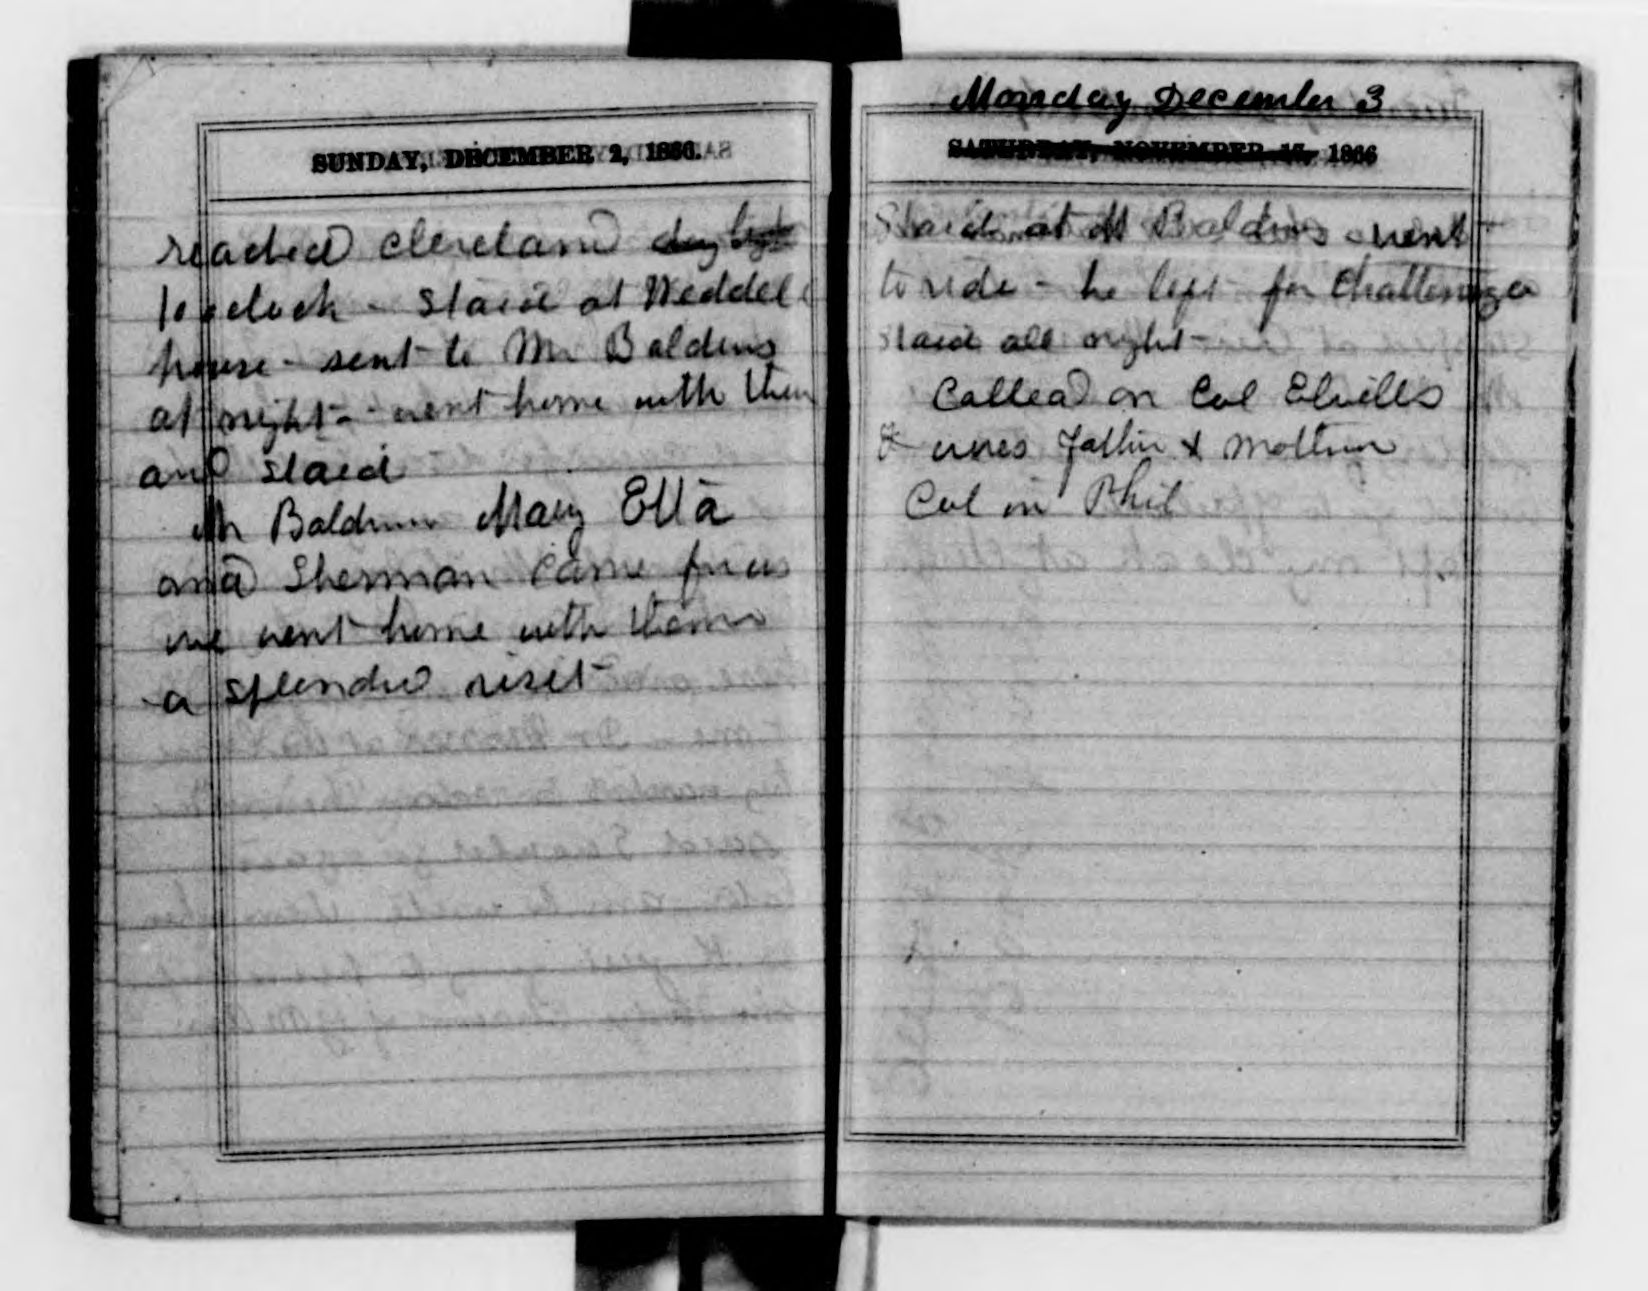 SUNDAY, DECEMBER 2, 1866.
reached Cleveland day light
10 oclock - staid at Weddell
house - sent to Mr Baldwins
at night - went home with them
and staid
Mr Baldwin Mary Etta
and Sherman came for us
we went home with them
a splendid visit
Monday December 3
SATURDAY, NOVEMBER 17, 1866
Staid at M Baldwins went
to ride - he left for Chattanooga
staid all night -
Called on Col Elwells
& wifes Father & Mother
Col in Phil